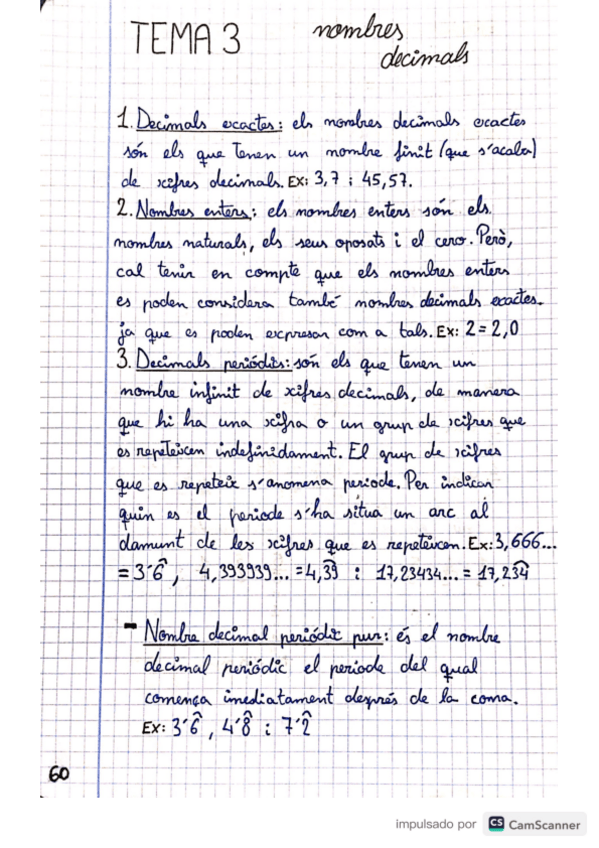 TEMA 3 nombres
decimals
1. Decimals exactes: els nombres decimals exactes
són els que tenen un nombre finit (que s'acaba)
de xifres decimals. Ex: 3,7 i 45,57.
2. Nombres enters: els nombres enters són els
nombres naturals, els seus oposats i el cero. Però,
cal tenir en compte que els nombres enters
es poden considera també nombres decimals exactes.
ja que es poden expresar com a tals. Ex: 2 = 2,0
3. Decimals periódics: són els que tenen un
nombre infinit de xifres decimals, de manera
que hi ha una xifra o un grup de xifres que
es repeteixen indefinidament. El grup de xifres
que es repeteix s'anomena periode. Per indicar
quin es el periode s'ha situa un arc al
damunt de les xifres que es repeteixen. Ex: 3,666...
= 3´6̂, 4,393939... = 4,3͡9 i 17,23434... = 17,23͡4
- Nombre decimal periódic pur: és el nombre
decimal periódic el periode del qual
comença imediatament després de la coma.
Ex: 3´6̂, 4´8̂ i 7´2̂
60
impulsado por CS CamScanner